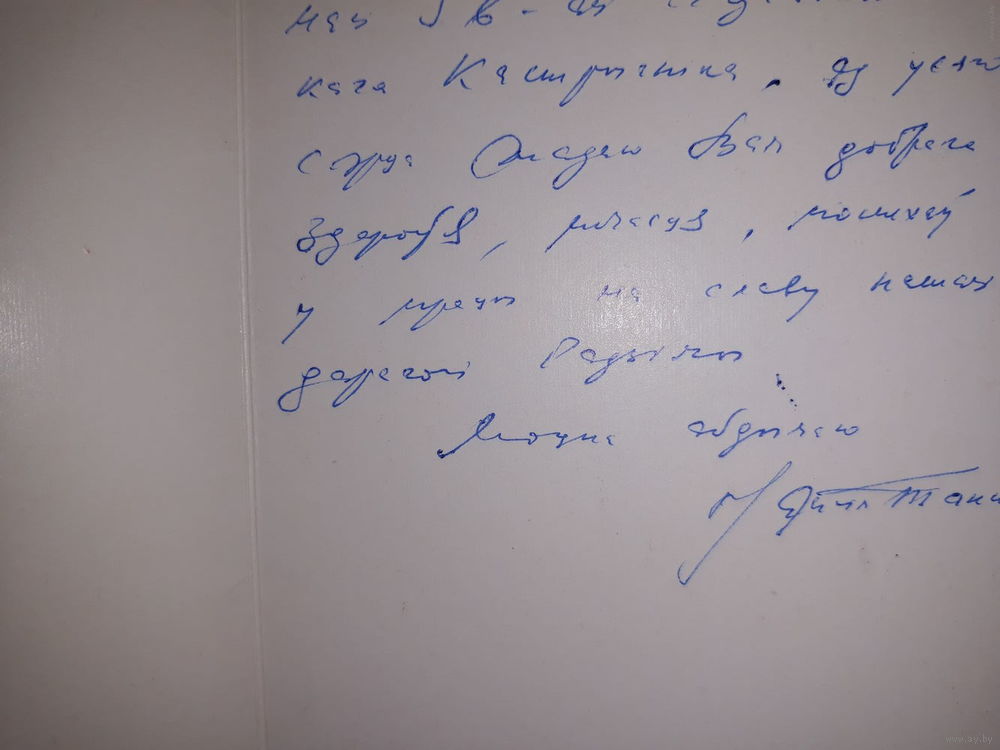 кага Кастрычніка, ад усяго
сэрца жадаю Вам добрага
здароўя, шчасця, поспехаў
у працы на славу нашай
дарагой Радзімы
Моцна абдымаю
www.ay.by